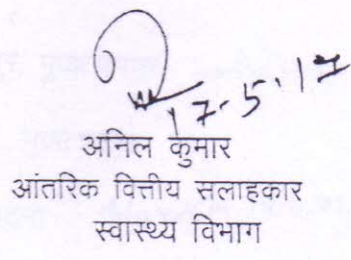 17-5-17
अनिल कुमार
आंतरिक वित्तीय सलाहकार
स्वास्थ्य विभाग